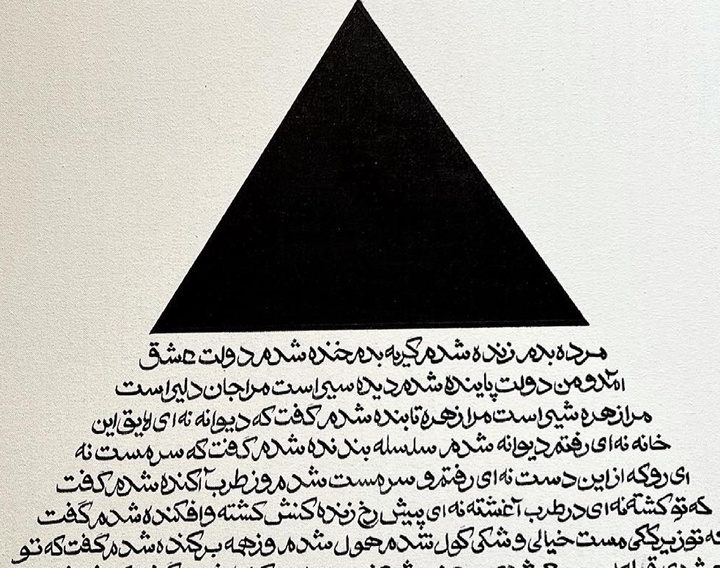 مرده بدم زنده شدم گریه بدم خنده شدم دولت عشق
آمد و من دولت پاینده شدم دیده سیر است مرا جان دلیر است
مرا زهره شیر است مرا زهره تابنده شدم گفت که دیوانه نه ای لایق این
خانه نه ای رفتم دیوانه شدم سلسله بندنده شدم گفت که سرمست نه
ای رو که از این دست نه ای رفتم و سرمست شدم وز طرب آکنده شدم گفت
که تو کشته نه ای در طرب آغشته نه ای پیش رخ زنده کنش کشته و افکنده شدم گفت
که تو زیرککی مست خیالی و شکی گول شدم هول شدم وز همه برکنده شدم گفت که تو